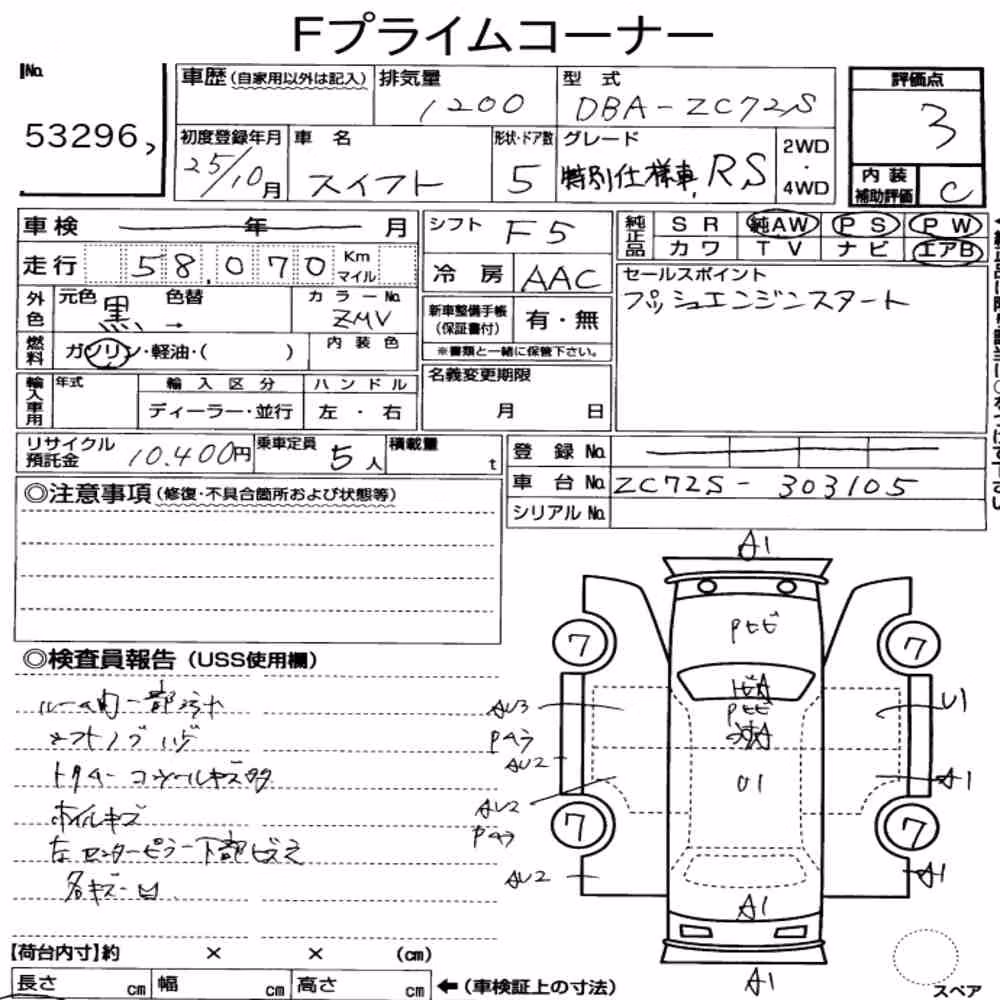 Fプライムコーナー
No.
53296
車歴(自家用以外は記入)
排気量
1200
型式
DBA-ZC72S
評価点
3
初度登録年月
25/10月
車名
スイフト
形状・ドア数
5
グレード
特別仕様車 RS
2WD
・
4WD
内装
補助評価
C
車検 年 月
走行 58,070 Km
マイル
外色
元色 黒 色替
カラーNo.
ZMV
燃料
ガソリン・軽油・( )
内装色
輸入車用
年式
輸入区分
ディーラー・並行
ハンドル
左・右
シフト F5
冷房 AAC
新車整備手帳
(保証書付)
有・無
※書類と一緒に保管下さい。
名義変更期限
月 日
純正品
SR 純AW PS PW
カワ TV ナビ エアB
セールスポイント
プッシュエンジンスタート
リサイクル
預託金
10.400円
乗車定員
5人
積載量
t
登録No.
車台No. ZC72S-303105
シリアルNo.
◎注意事項(修復・不具合箇所および状態等)
◎検査員報告(USS使用欄)
ルーム内一部汚れ
シフトノブハゲ
ホイルキズ
左センターピラー下部ビス
各キズ凹
A1
Pヒビ
7
7
AU3
U1
AU2
U1
A1
AU2
7
7
AU2
A1
A1
A1
【荷台内寸】約 × × (cm)
長さ cm 幅 cm 高さ cm
←(車検証上の寸法)
スペア